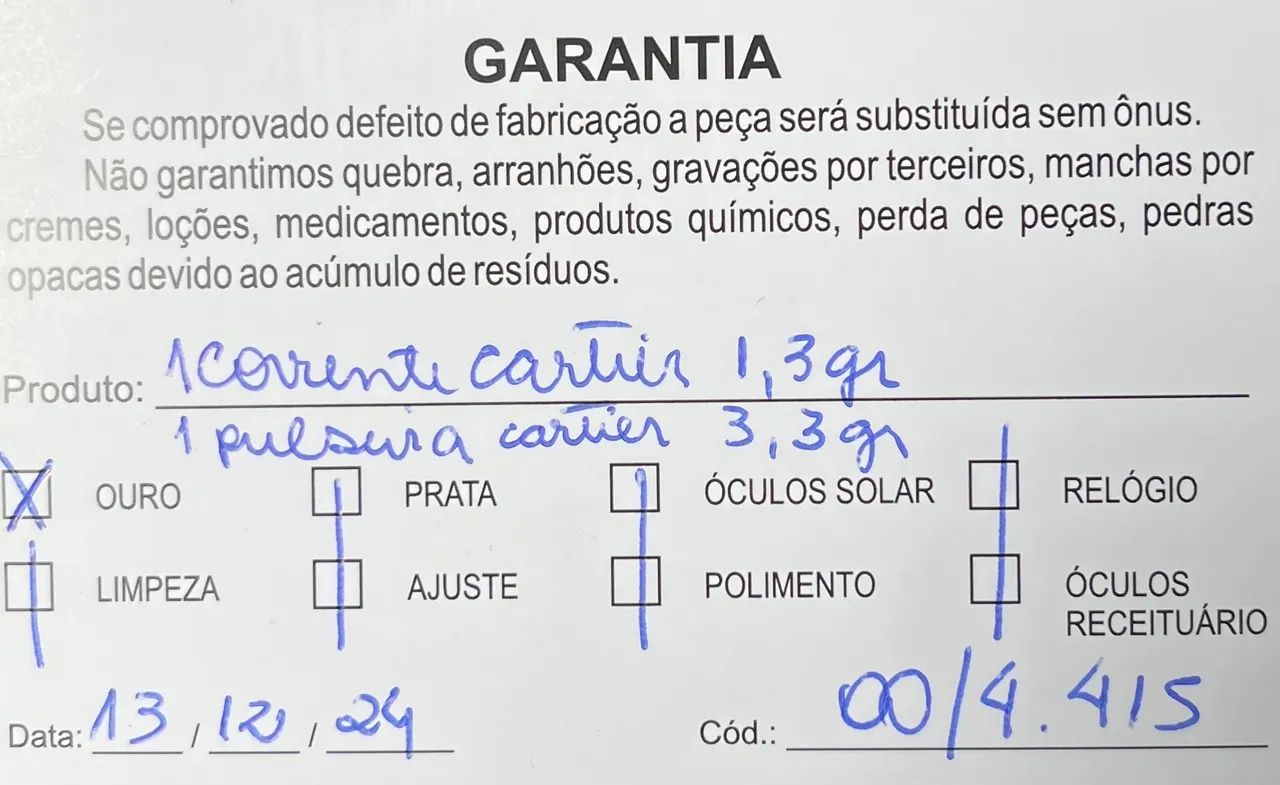 GARANTIA
Se comprovado defeito de fabricação a peça será substituída sem ônus.
Não garantimos quebra, arranhões, gravações por terceiros, manchas por
cremes, loções, medicamentos, produtos químicos, perda de peças, pedras
opacas devido ao acúmulo de resíduos.
Produto: 1 corrente cartier 1,3gr
1 pulseira cartier 3,3gr
X OURO PRATA ÓCULOS SOLAR RELÓGIO
LIMPEZA AJUSTE POLIMENTO ÓCULOS
RECEITUÁRIO
Data: 13 / 12 / 24 Cód.: 00/4.415